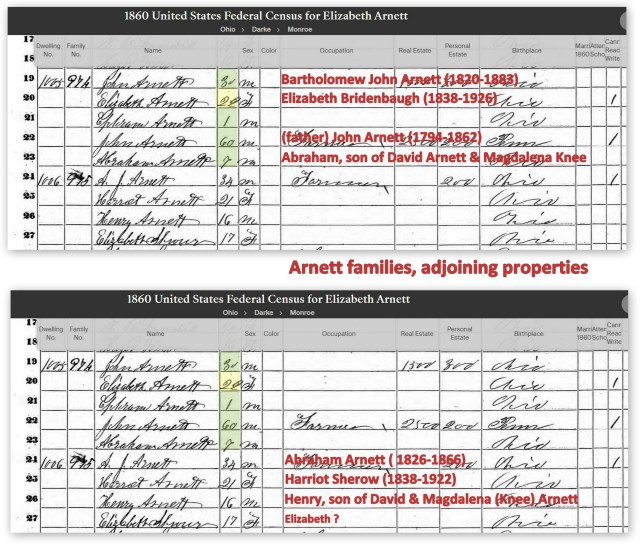 1860 United States Federal Census for Elizabeth Arnett
Ohio > Darke > Monroe
17
18
Dwelling No. Family No. Name Sex Color Occupation Real Estate Personal Estate Birthplace
19 1005 974 John Arnett 3 m Bartholomew John Arnett (1820-1883)
20 Elizabeth Arnett 20 F Elizabeth Bridenbaugh (1838-1926)
21 Ephram Arnett 1 m Ohio
22 John Arnett 60 m (father) John Arnett (1794-1862) Penn /
23 Abraham Arnett 7 m Abraham, son of David Arnett & Magdalena Knee
24 1006 975 A. J. Arnett 34 m Farmer 200 Ohio /
25 Harriot Arnett 21 F Ohio
26 Henry Arnett 16 m Ohio
27 Elizabeth 17 F Ohio
Arnett families, adjoining properties
1860 United States Federal Census for Elizabeth Arnett
Ohio > Darke > Monroe
17
18
Dwelling No. Family No. Name Sex Color Occupation Real Estate Personal Estate Birthplace
19 1005 974 John Arnett 3 m 1500 300 Ohio
20 Elizabeth Arnett 20 F Ohio /
21 Ephram Arnett 1 m Ohio
22 John Arnett 60 m Farmer 2500 200 Penn /
23 Abraham Arnett 7 m Ohio
24 1006 975 A. J. Arnett 34 m Abraham Arnett ( 1826-1866) Ohio /
25 Harriot Arnett 21 F Harriot Sherow (1838-1922) Ohio
26 Henry Arnett 16 m Henry, son of David & Magdalena (Knee) Arnett
27 Elizabeth 17 F Elizabeth ? Ohio